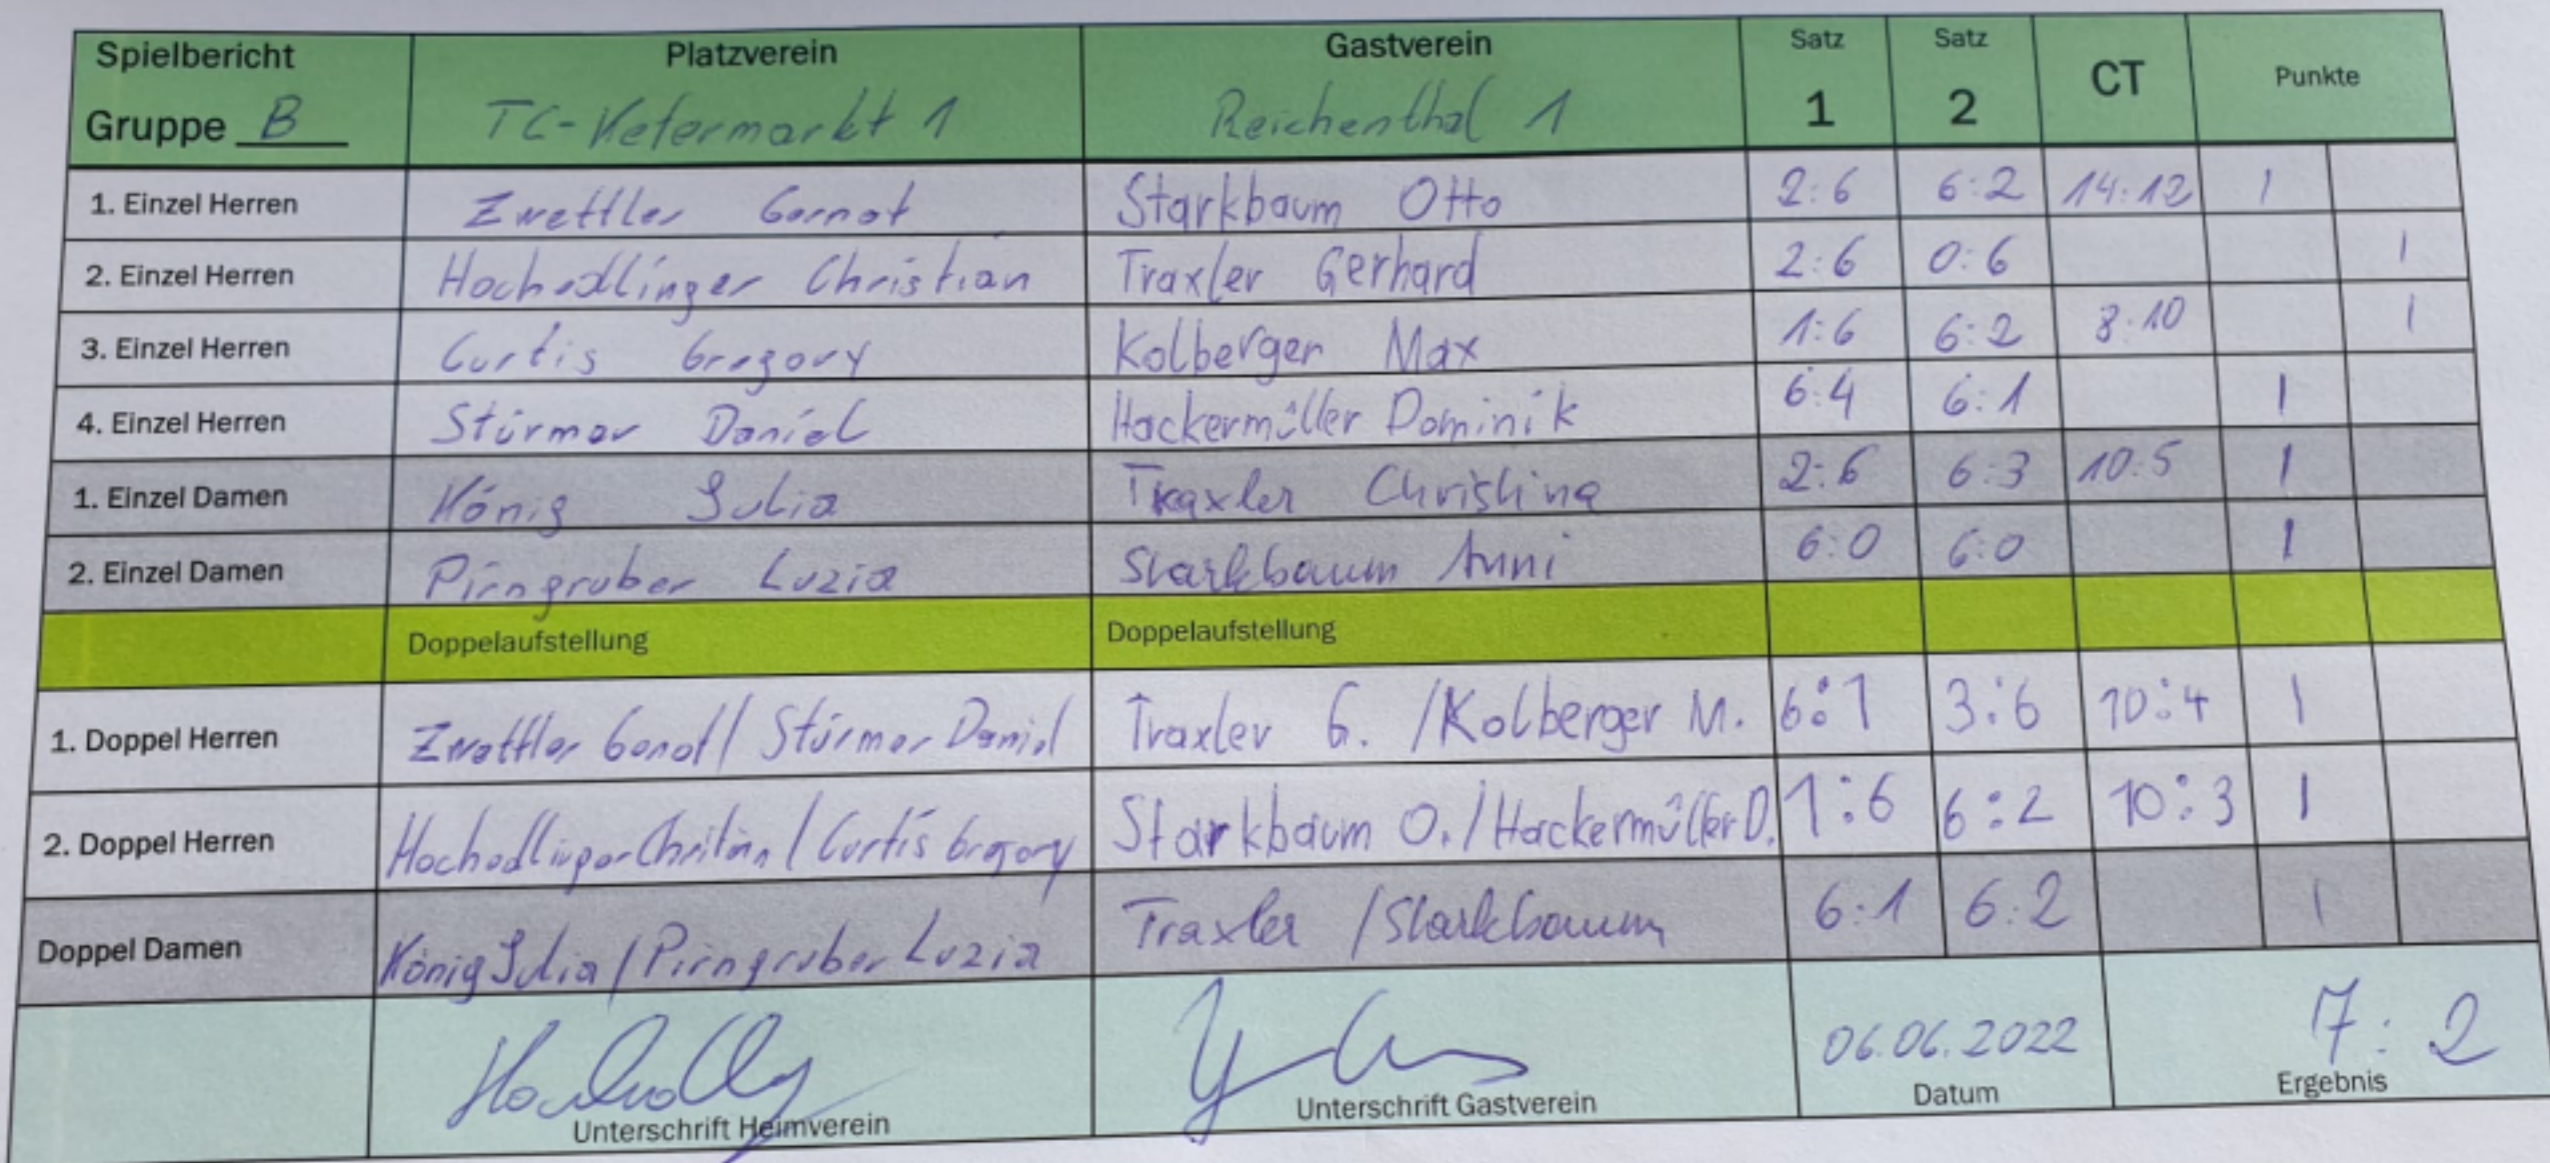 Spielbericht Platzverein Gastverein Satz Satz CT Punkte
Gruppe B TC-Kefermarkt 1 Reichenthal 1 1 2
1. Einzel Herren Zwettler Gernot Starkbaum Otto 2:6 6:2 14:12 1
2. Einzel Herren Hochedlinger Christian Traxler Gerhard 2:6 0:6 1
3. Einzel Herren Curtis Gregory Kolberger Max 1:6 6:2 8:10 1
4. Einzel Herren Stürmer Daniel Hackermüller Dominik 6:4 6:1 1
1. Einzel Damen König Julia Traxler Christina 2:6 6:3 10:5 1
2. Einzel Damen Pirngruber Luzia Starkbaum Anni 6:0 6:0 1
Doppelaufstellung Doppelaufstellung
1. Doppel Herren Zwettler Genot / Stürmer Daniel Traxler G. / Kolberger M. 6:1 3:6 10:4 1
2. Doppel Herren Hochedlinger / Curtis Gregory Starkbaum O. / Hackermüller D. 1:6 6:2 10:3 1
Doppel Damen König Julia / Pirngruber Luzia Traxler / Starkbaum 6:1 6:2 1
06.06.2022 7:2
Unterschrift Heimverein Unterschrift Gastverein Datum Ergebnis